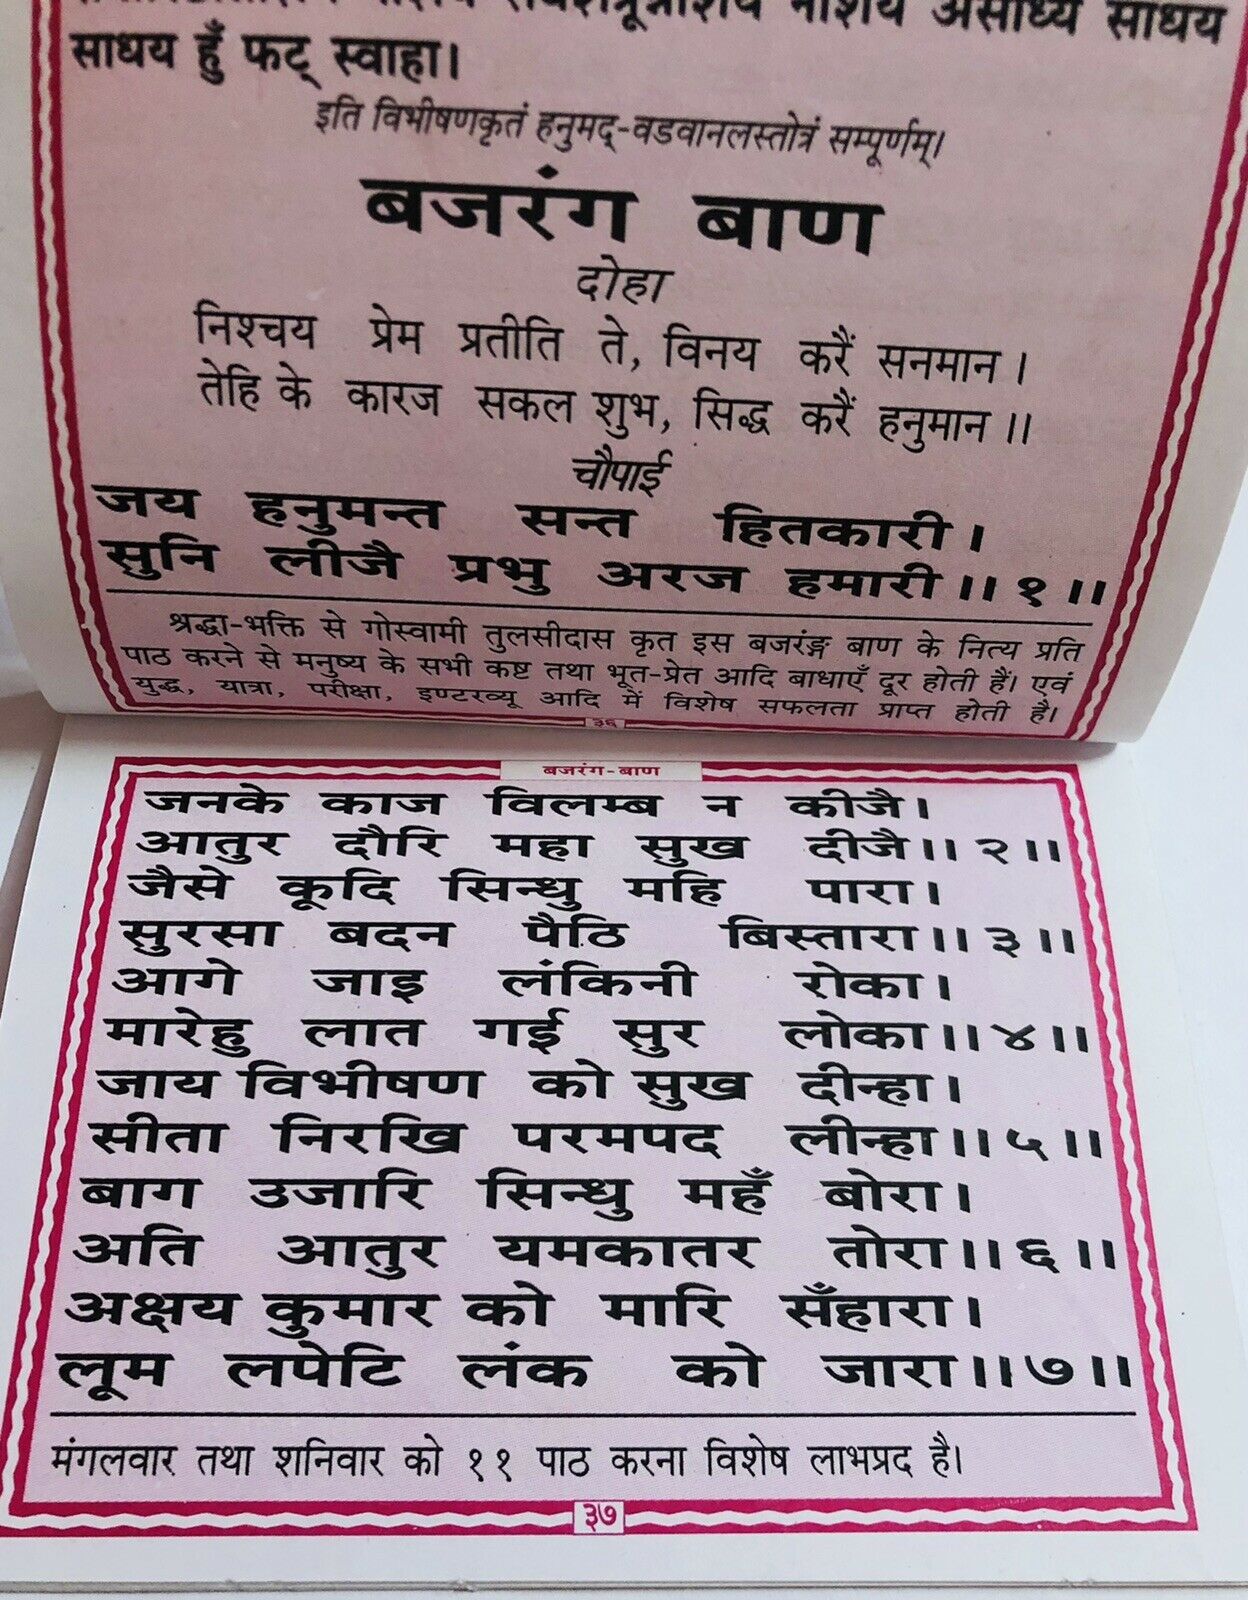 नाशय असाध्य साधय
साधय हुँ फट् स्वाहा।
इति विभीषणकृतं हनुमद्-वडवानलस्तोत्रं सम्पूर्णम्।
बजरंग बाण
दोहा
निश्चय प्रेम प्रतीति ते, विनय करैं सनमान।
तेहि के कारज सकल शुभ, सिद्ध करैं हनुमान॥
चौपाई
जय हनुमन्त सन्त हितकारी।
सुनि लीजै प्रभु अरज हमारी॥१॥
श्रद्धा-भक्ति से गोस्वामी तुलसीदास कृत इस बजरंङ्ग बाण के नित्य प्रति
पाठ करने से मनुष्य के सभी कष्ट तथा भूत-प्रेत आदि बाधाएँ दूर होती हैं। एवं
युद्ध, यात्रा, परीक्षा, इण्टरव्यू आदि में विशेष सफलता प्राप्त होती है।
३६
बजरंग-बाण
जनके काज विलम्ब न कीजै।
आतुर दौरि महा सुख दीजै॥२॥
जैसे कूदि सिन्धु महि पारा।
सुरसा बदन पैठि बिस्तारा॥३॥
आगे जाइ लंकिनी रोका।
मारेहु लात गई सुर लोका॥४॥
जाय विभीषण को सुख दीन्हा।
सीता निरखि परमपद लीन्हा॥५॥
बाग उजारि सिन्धु महँ बोरा।
अति आतुर यमकातर तोरा॥६॥
अक्षय कुमार को मारि सँहारा।
लूम लपेटि लंक को जारा॥७॥
मंगलवार तथा शनिवार को ११ पाठ करना विशेष लाभप्रद है।
३७